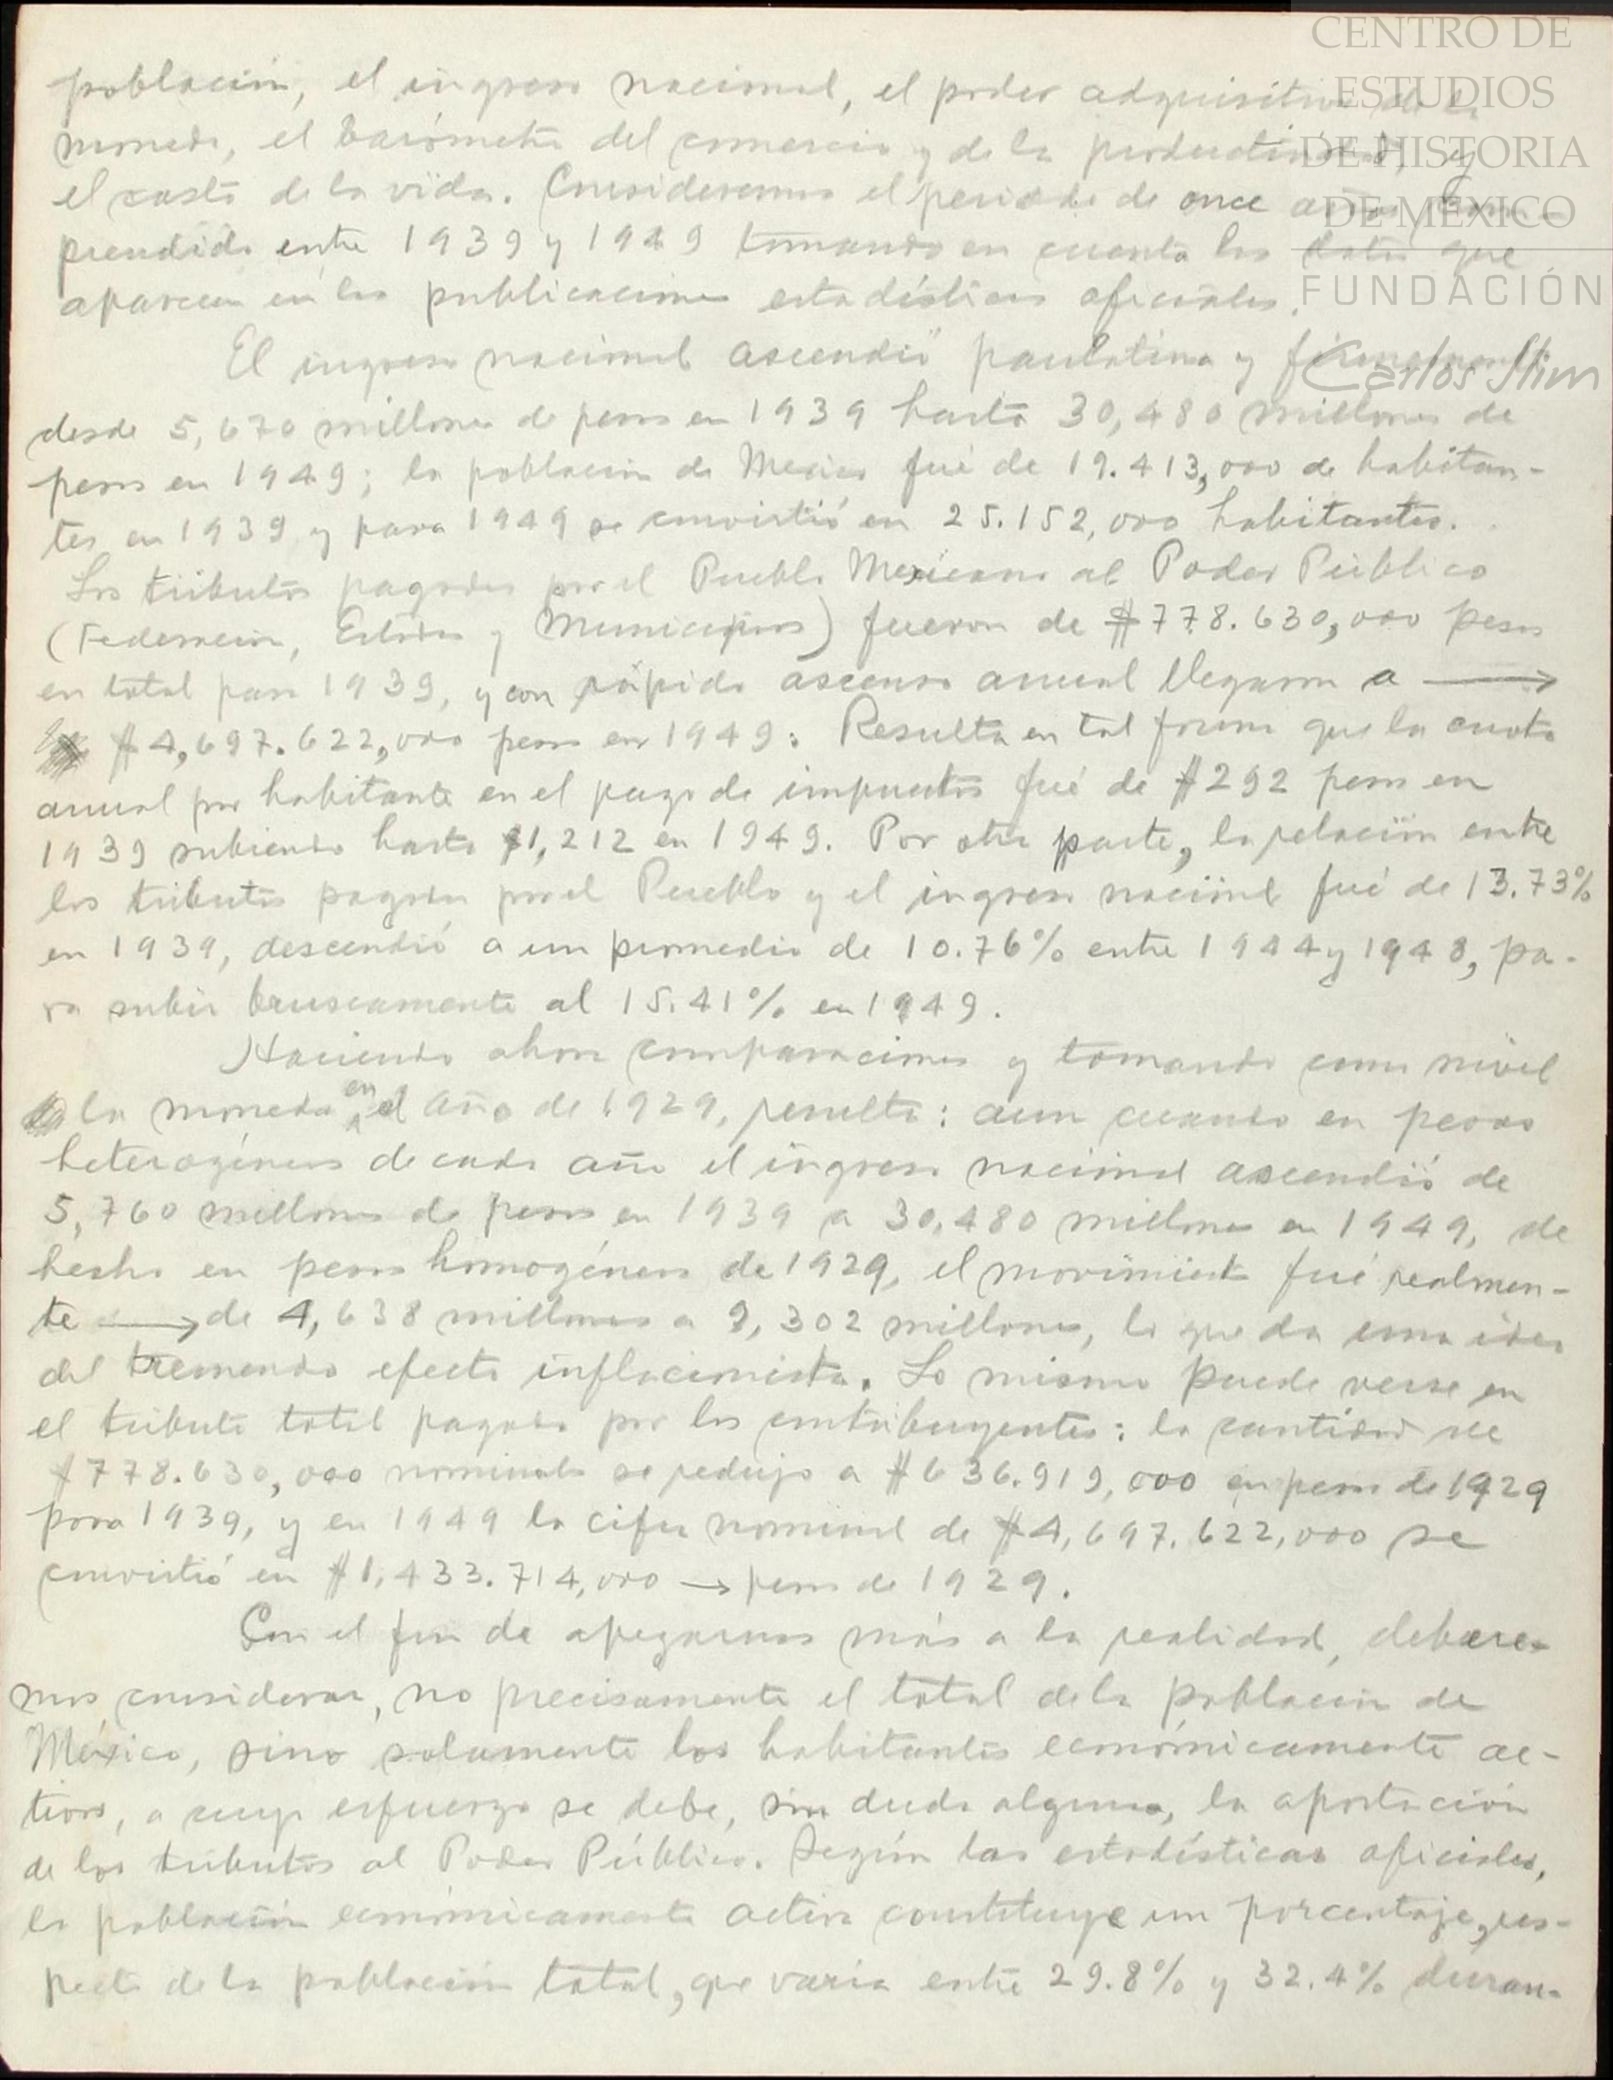 CENTRO DE
ESTUDIOS
DE HISTORIA
DE MÉXICO
FUNDACIÓN
Carlos Slim
población, el ingreso nacional, el poder adquisitivo de la
moneda, el barómetro del comercio y de la productividad, y
el costo de la vida. Consideremos el periodo de once años com-
prendido entre 1939 y 1949 tomando en cuenta los datos que
aparecen en las publicaciones estadísticas oficiales.
El ingreso nacional ascendió paulatina y firmemente
desde 5,670 millones de pesos en 1939 hasta 30,480 millones de
pesos en 1949; la población de Mexico fué de 19.413,000 de habitan-
tes en 1939 y para 1949 se convirtió en 25.152,000 habitantes.
Los tributos pagados por el Pueblo Mexicano al Poder Público
(Federación, Estados y Municipios) fueron de $778.630,000 pesos
en total para 1939, y con rápido ascenso anual llegaron a →
$4,697.622,000 pesos en 1949. Resulta en tal forma que la cuota
anual por habitante en el pago de impuestos fué de $292 pesos en
1939 subiendo hasta $1,212 en 1949. Por otra parte, la relación entre
los tributos pagados por el Pueblo y el ingreso nacional fué de 13.73%
en 1939, descendió a un promedio de 10.76% entre 1944 y 1948, pa-
ra subir bruscamente al 15.41% en 1949.
Haciendo ahora comparaciones y tomando como nivel
la moneda en el año de 1929, resulta: aun cuando en pesos
heterogéneos de cada año el ingreso nacional ascendió de
5,760 millones de pesos en 1939 a 30,480 millones en 1949, de
hecho en pesos homogéneos de 1929, el movimiento fué realmen-
te → de 4,638 millones a 9,302 millones, lo que da una idea
del tremendo efecto inflacionista. Lo mismo puede verse en
el tributo total pagado por los contribuyentes: la cantidad de
$778.630,000 nominales se redujo a $636.919,000 en pesos de 1929
para 1939, y en 1949 la cifra nominal de $4,697.622,000 se
convirtió en $1,433.714,000 → pesos de 1929.
Con el fin de apegarnos más a la realidad, debere-
mos considerar, no precisamente el total de la población de
México, sino solamente los habitantes económicamente ac-
tivos, a cuyo esfuerzo se debe, sin duda alguna, la aportación
de los tributos al Poder Público. Según las estadísticas oficiales,
la población económicamente activa constituye un porcentaje, res-
pecto de la población total, que varía entre 29.8% y 32.4% duran-